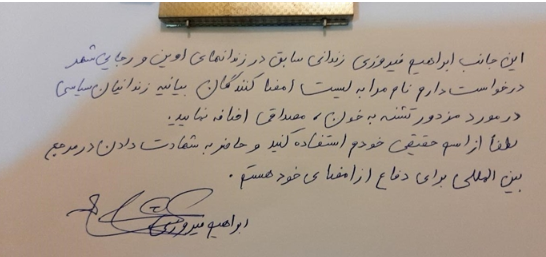 این جانب ابراهیم فیروزی زندانی سابق در زندانهای اوین و رجایی شهر
درخواست دارم نام مرا به لیست امضا کنندگان بیانیه زندانیان سیاسی
در مورد مزدور تشنه به خون، مصداقی اضافه نمایید.
لطفا از اسم حقیقی خودم استفاده کنید و حاضر به شهادت دادن در مرجع
بین المللی برای دفاع از امضای خود هستم.
ابراهیم فیروزی